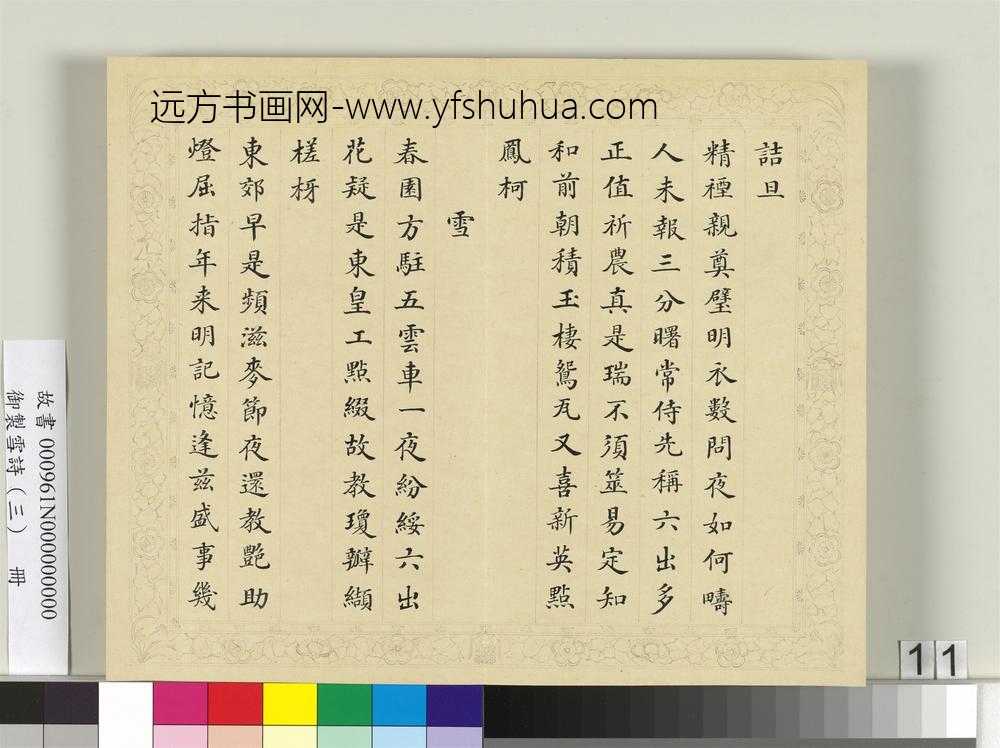 远方书画网-www.yfshuhua.com
詰旦
精禋親奠璧明衣數問夜如何疇
人未報三分曙常侍先稱六出多
正值祈農真是瑞不須筮易定知
和前朝積玉棲鴛瓦又喜新英點
鳳柯
雪
春園方駐五雲車一夜紛綏六出
花疑是東皇工點綴故教瓊瓣纈
槎枒
東郊早是頻滋麥節夜還教艷助
燈屈指年来明記憶逢茲盛事幾
故書 000961N000000000
御製雪詩(三) 冊
11